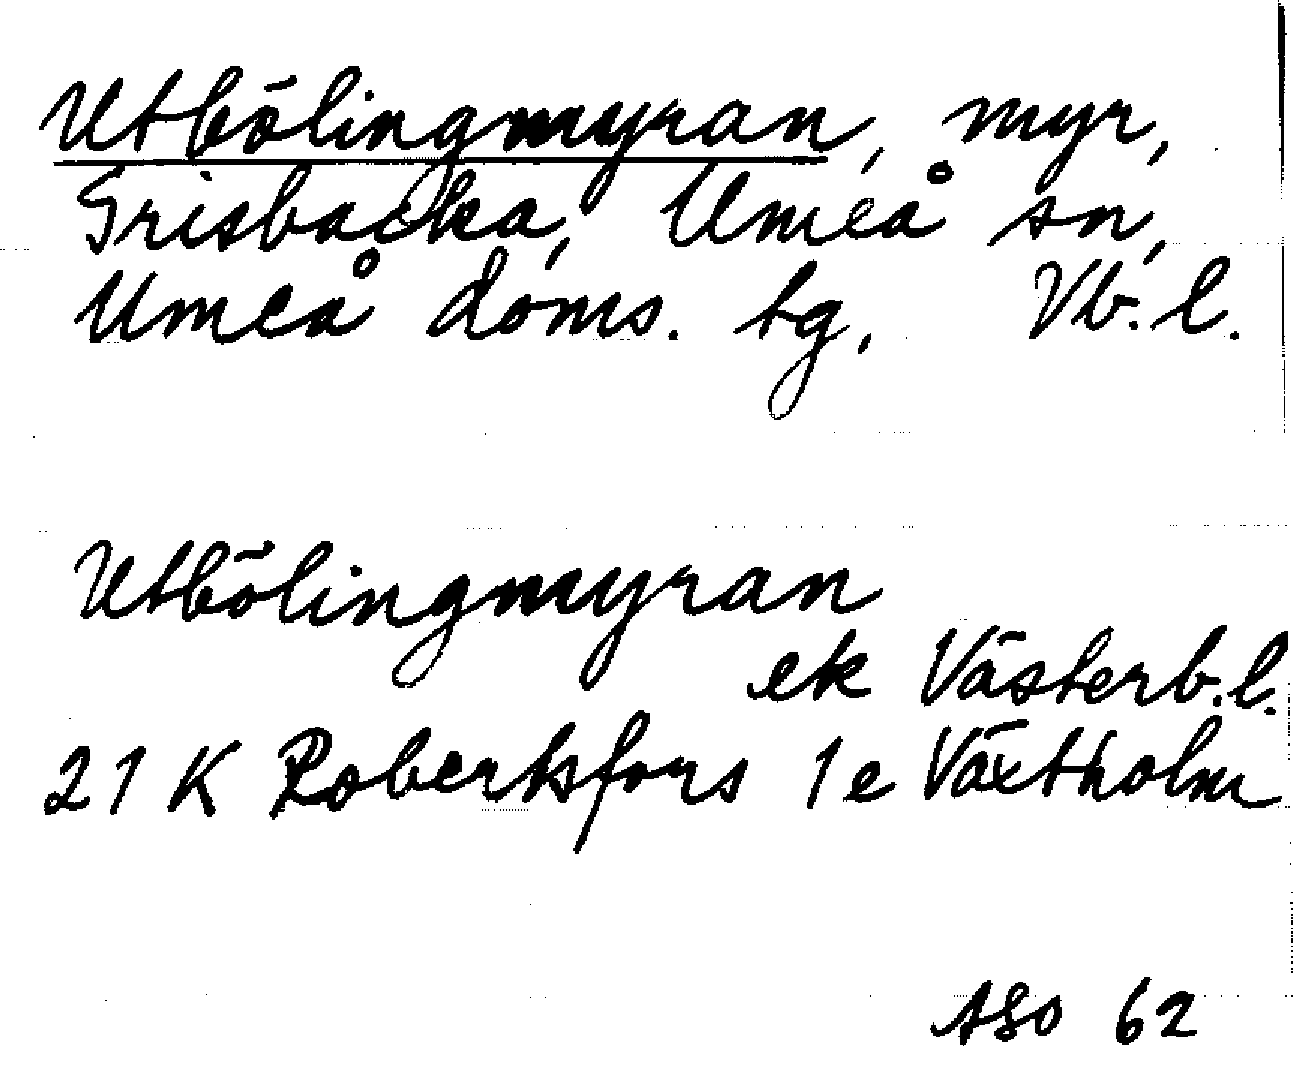 Utbölingmyran, myr,
Grisbacka, Umeå sn,
Umeå doms. tg, Vb. l.
Utbölingmyran
ek Västerb. l.
21 K Robertsfors 1 e Växtholm
ASO 62